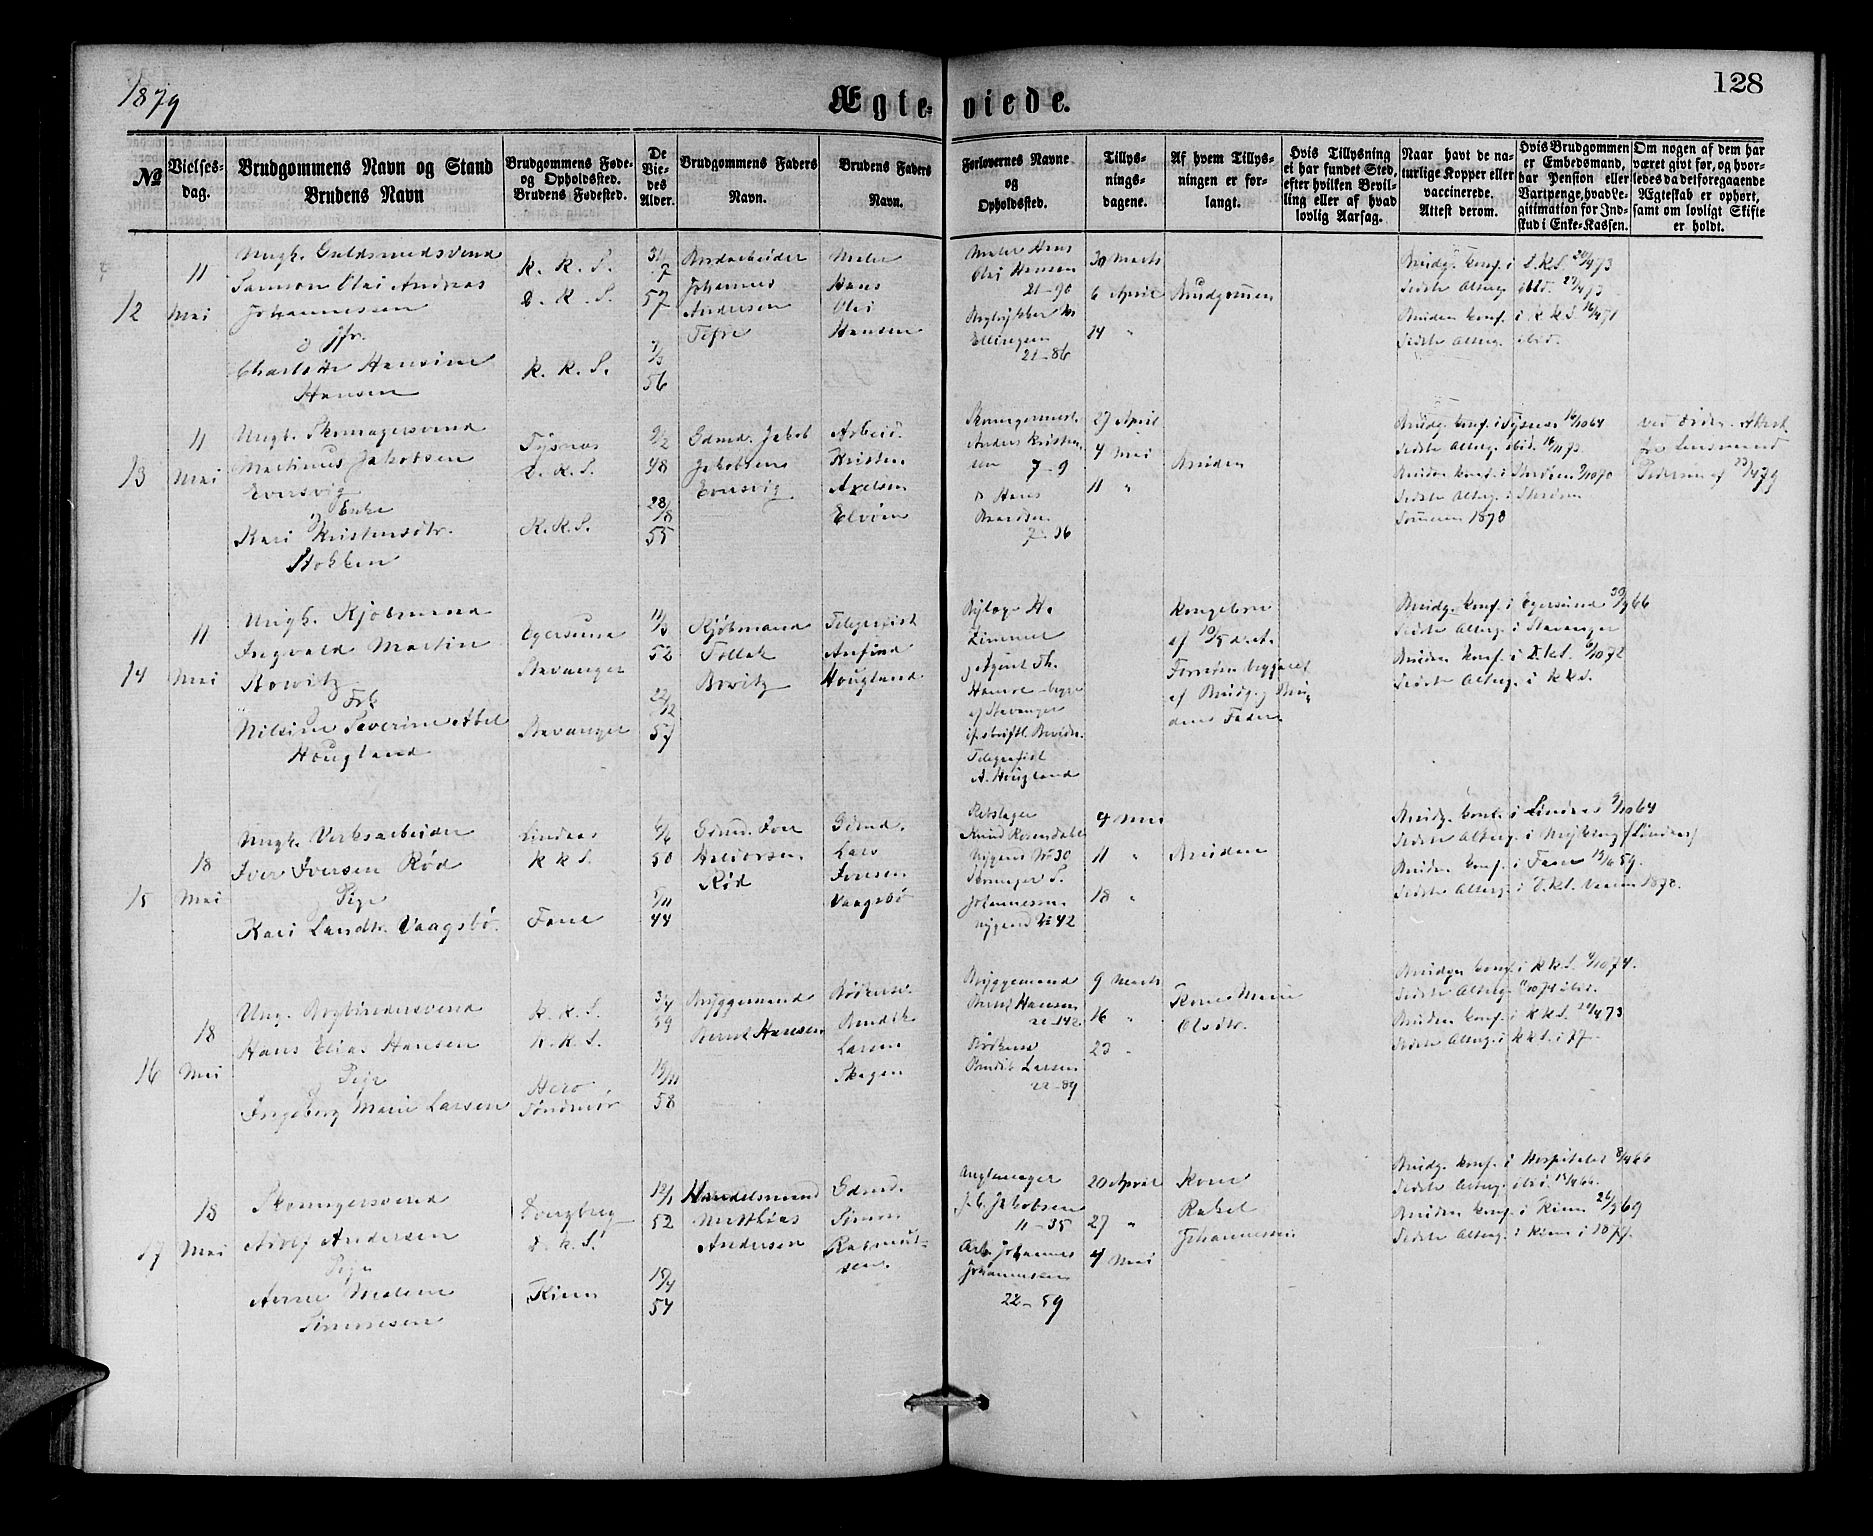 1879
Ægteviede.
128
№
Vielsesdag.
Brudgommens Navn og Stand
Brudens Navn
Brudgommens Føde- og Opholdssted.
Brudens Fødested.
De Viedes Alder.
Brudgommens Faders Navn.
Brudens Faders Navn.
Forlovernes Navne og Opholdssted.
Tillysningsdagene.
Af hvem Tillysningen er forlangt.
Hvis Tillysning ei har fundet Sted, efter hvilken Bevilling eller af hvad lovlig Aarsag.
Naar havt de naturlige Kopper eller vaccinerede. Attest derom.
Hvis Brudgommen er Embedsmand, har Pension eller Vartpenge, hvad Legitimation for Indskud i Enke-Kassen.
Om nogen af dem har været givt før, og hvorledes da det foregaaende Ægteskab er ophørt, samt om lovligt Skifte er holdt.
12
11
Mai
Ungk. Guldsmedsvend
Samson Olai Andreas
Johannesen
Jfr.
Charlotte Hansine
Hansen
K. K. S.
D. K. S.
K. K. S.
57
56
Johannes
Andersen
Maler
Hans
Olai
Hansen
Maler Hans
Olai Hansen
21-90
21-86
30 Marts
6 April
14 "
Brudgommen
Brudg. konf. i D.K.S. 20/4 73
Sidste Alterg. ibid. 27/4 73
Bruden konf. i K.K.S. 16/4 71
Sidste Alterg. ibid.
13
11
Mai
Ungk. Skomagersvend
Martinus Jakobsen
Eversvig
Enke
Kari Kristensdtr.
Stokken
Tysnæs
D. K. S.
K. K. S.
48
28/8
55
Gdmd. Jakob
Jakobsen
Eversvig
Arbeid.
Kristen
Axelsen
Skomagermest.
Anders Kristensen
7-9
Hans
7-36
27 April
4 Mai
11 "
Bruden
Brudg. konf. i Tysnæs 16/10 64
Sidste Alterg. ibid. 16/11 73
Bruden konf. i Storøen 9/10 70
Sidste Alterg. i Storøen
Sommeren 1878
Pedersen af 23/4 79
14
11
Mai
Ungk. Kjøbmand
Ingvald Martin
Bowitz
Frk.
Nilsine Severine Abel
Hougland
Egersund
Stavanger
Stavanger
11/3
52
22/12
57
Kjøbmand
Tollak
Bowitz
Telegrafist
Anfind
Hougland
Zimmer
Agent Th.
Hansen begge
af Stavanger
Telegrafist
A. Hougland
Kongebrev
af 10/5 d.A.
Fader
Brudg. konf. i Egersund 30/9 66
Sidste Alterg. i Stavanger
Bruden konf. i D.K.S. 6/10 72
Sidste Alterg. i K.K.S.
15
18
Mai
Ungk. Verksarbeider
Iver Iversen Rød
Pige
Kari Larsdtr. Vaagsbø
Lindaas
K K S.
Fane
4/6
50
5/11
44
Gdmd. Iver
Haldorsen
Rød
Gdmd.
Lars
Iversen
Vaagsbø
Rebslager
Knud Rosendahl
Nygaard № 30
Skomager S.
Johannesen
Nygaard № 42
4 Mai
11 "
18 "
Bruden
Brudg. konf. i Lindaas 9/10 64
Bruden konf. i Fane 12/6 59.
Sidste Alterg. i D.K.S. Vaaren 1878.
16
18
Mai
Ung. Bogbindersvend
Hans Elias Hansen
Pige
Ingeborg Marie Larsen
K. K. S.
K. K. S.
Herø
Søndmør
3/4
59
19/11
58
Bryggemand
Bernt Hansen
Bødkersv.
Bendik
Larsen
Skagen
Bryggemand
Bernt Hansen
22-142
Bødkersv.
Bendik Larsen
22-89
9 Marts
16 "
23 "
Kone Marie
Olsdtr.
Brudgm konf. i K.K.S. 4/10 74.
Sidste Alterg. 11/10 74 ibid.
Bruden konf. i K.K.S. 20/4 73
Sidste Alterg. i K.K.S. i 77.
17
18
Mai
Skomagersvend
Adolf Andersen
Pige
Anne Malene
Simonsen
D. K. S.
Kinn
12/1
52
18/4
54
Handelsmand
Matthias
Andersen
Gdmd.
Simon
Rasmussen
J. C. Jakobsen
11-35
Arb. Johannes
Johannesen
22-59
20 April
27 "
4 Mai
Kone
Rakel
Johannesen
Brudg. konf. i Hospitalet 8/4 66
Sidste Alterg. ibid. 15/4 66.
Bruden konf. i Kinn 26/9 69
Sidste Alterg. i Kinn i 1877.